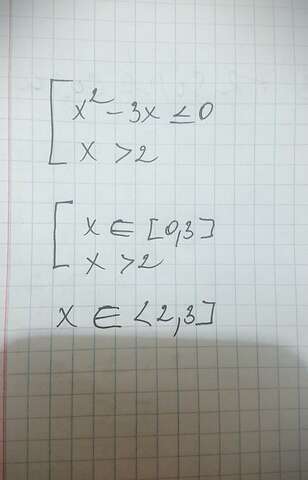 x² - 3x ≤ 0
x > 2
x ∈ [0,3]
x > 2
x ∈ <2,3]